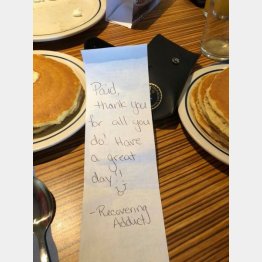 Paid,
thank you
for all you
do! Have
a great
day!!
-Recovering
Adduct